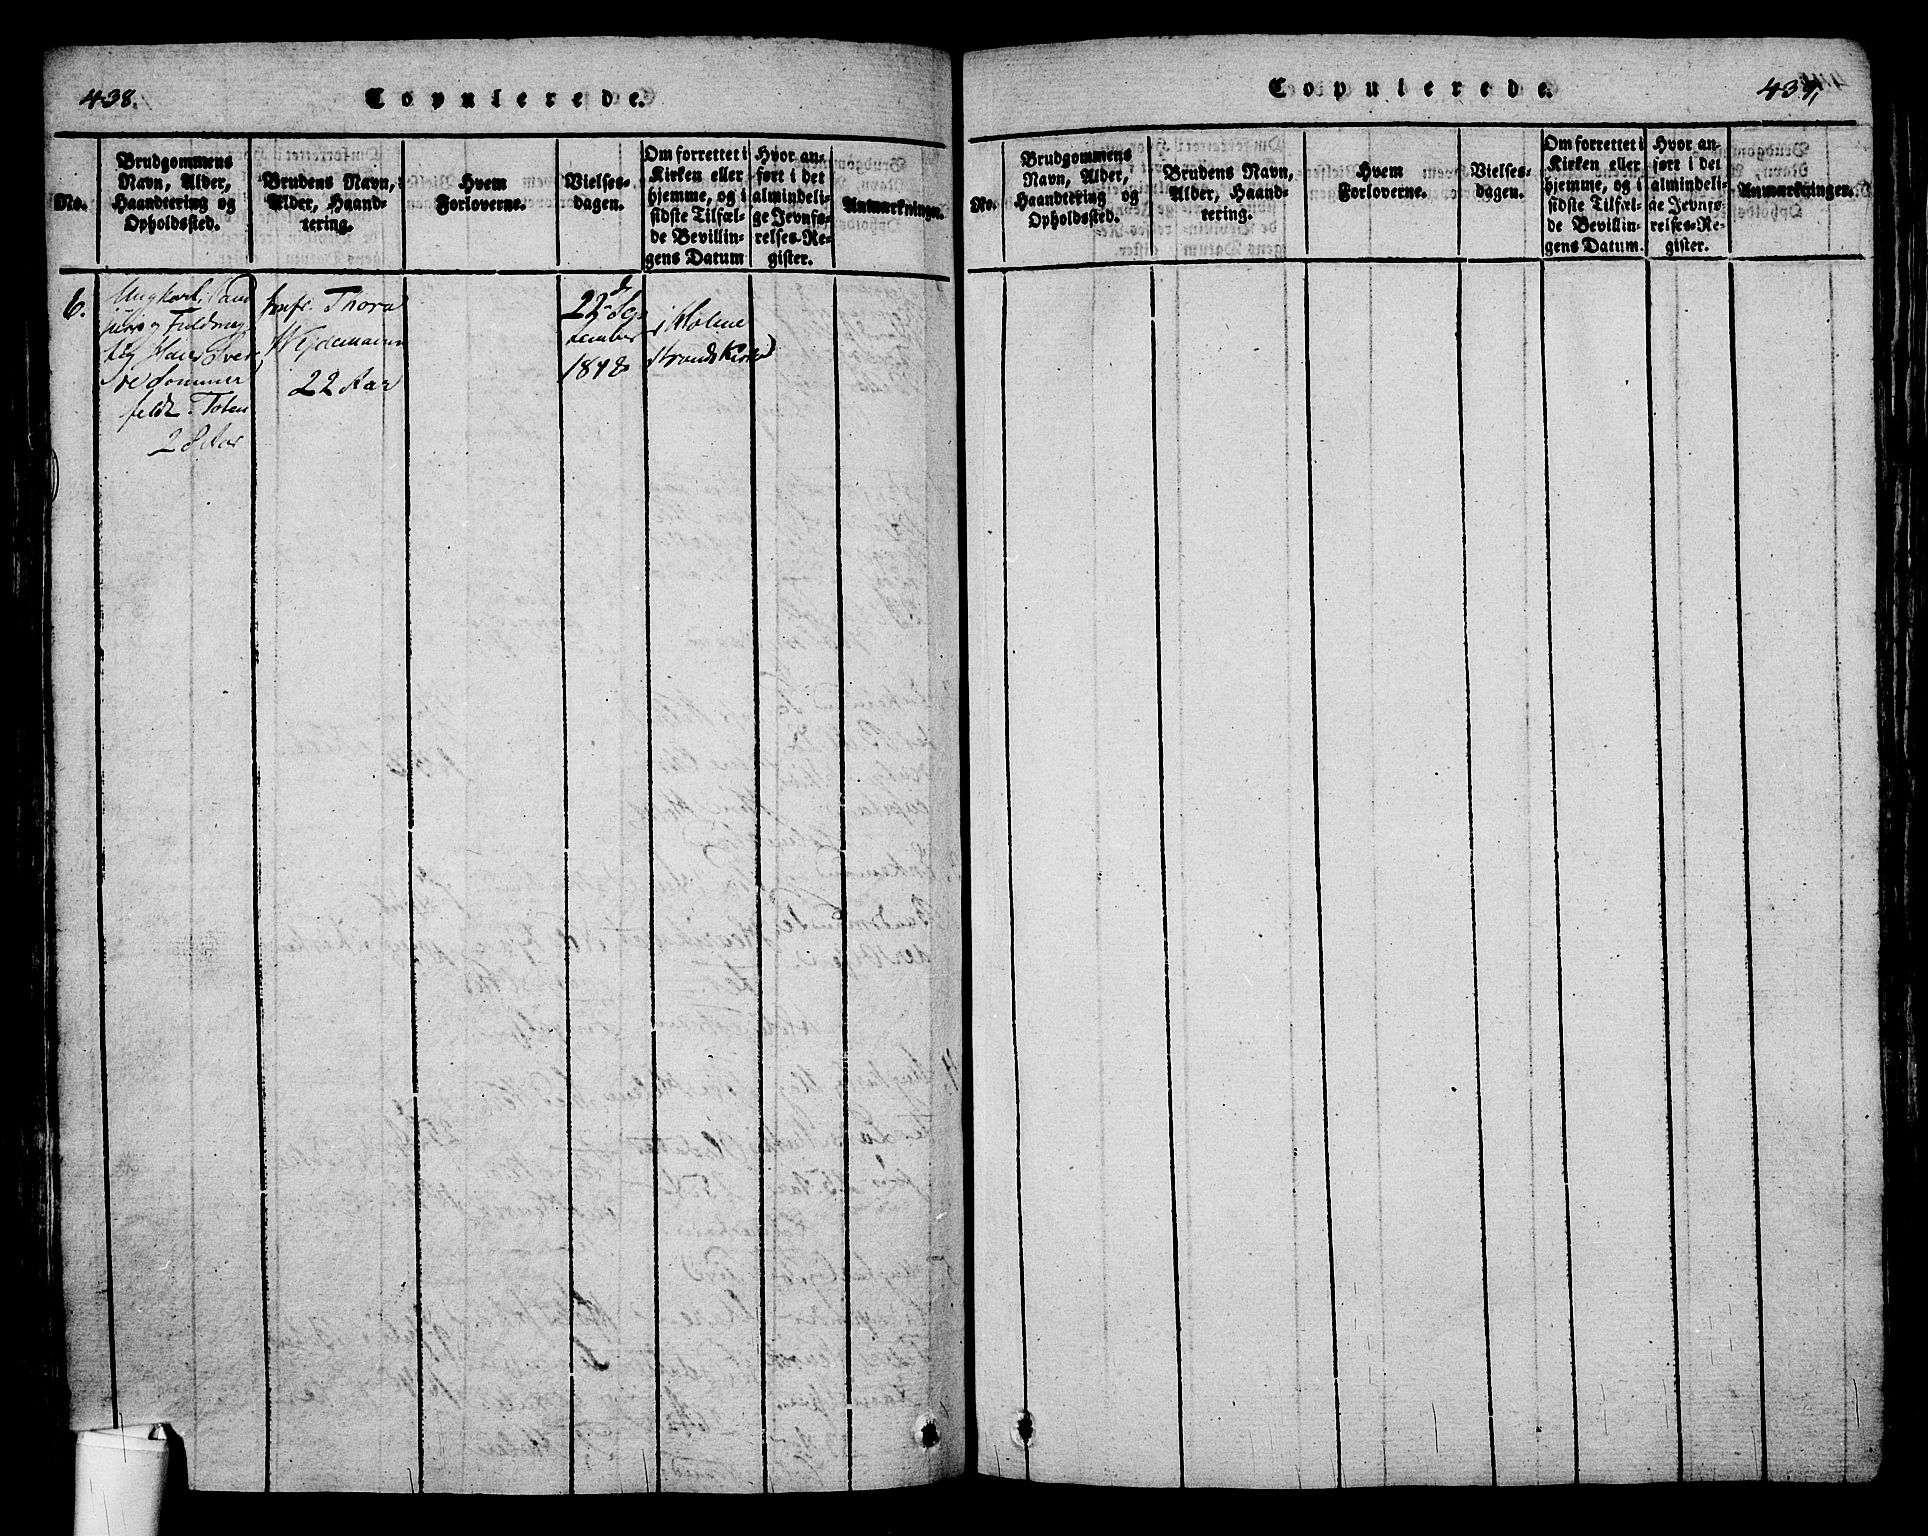 438.
Copulerede.
No.
Brudgommens
Navn, Alder,
Haandtering og
Opholdssted.
Brudens Navn,
Alder, Haand-
tering.
Hvem
Forloverne.
Vielses-
dagen.
Om forrettet i
Kirken eller
hjemme, og i
sidste Tilfæl-
de Bevillin-
gens Datum
Hvor an-
ført i det
almindeli-
ge Jevnfø-
relses-Re-
gister.
Anmarkninger.
6.
Ungkarl,
og Fuldmæg
tig Hans
Sommer
feldt. Toten
28 Aar
Jmfr. Thora
Wedemann
22 Aar
22d Sep
tember
1848
i Holme
strands Kirke
Copulerede.
439,
No.
Brudgommens
Navn, Alder,
Haandtering og
Opholdssted.
Brudens Navn,
Alder, Haand-
tering.
Hvem
Forloverne.
Vielses-
dagen.
Om forrettet i
Kirken eller
hjemme, og i
sidste Tilfæl-
de Bevillin-
gens Datum.
Hvor an-
ført i det
almindeli-
ge Jevnfø-
relses-Re-
gister.
Anmarkninger.